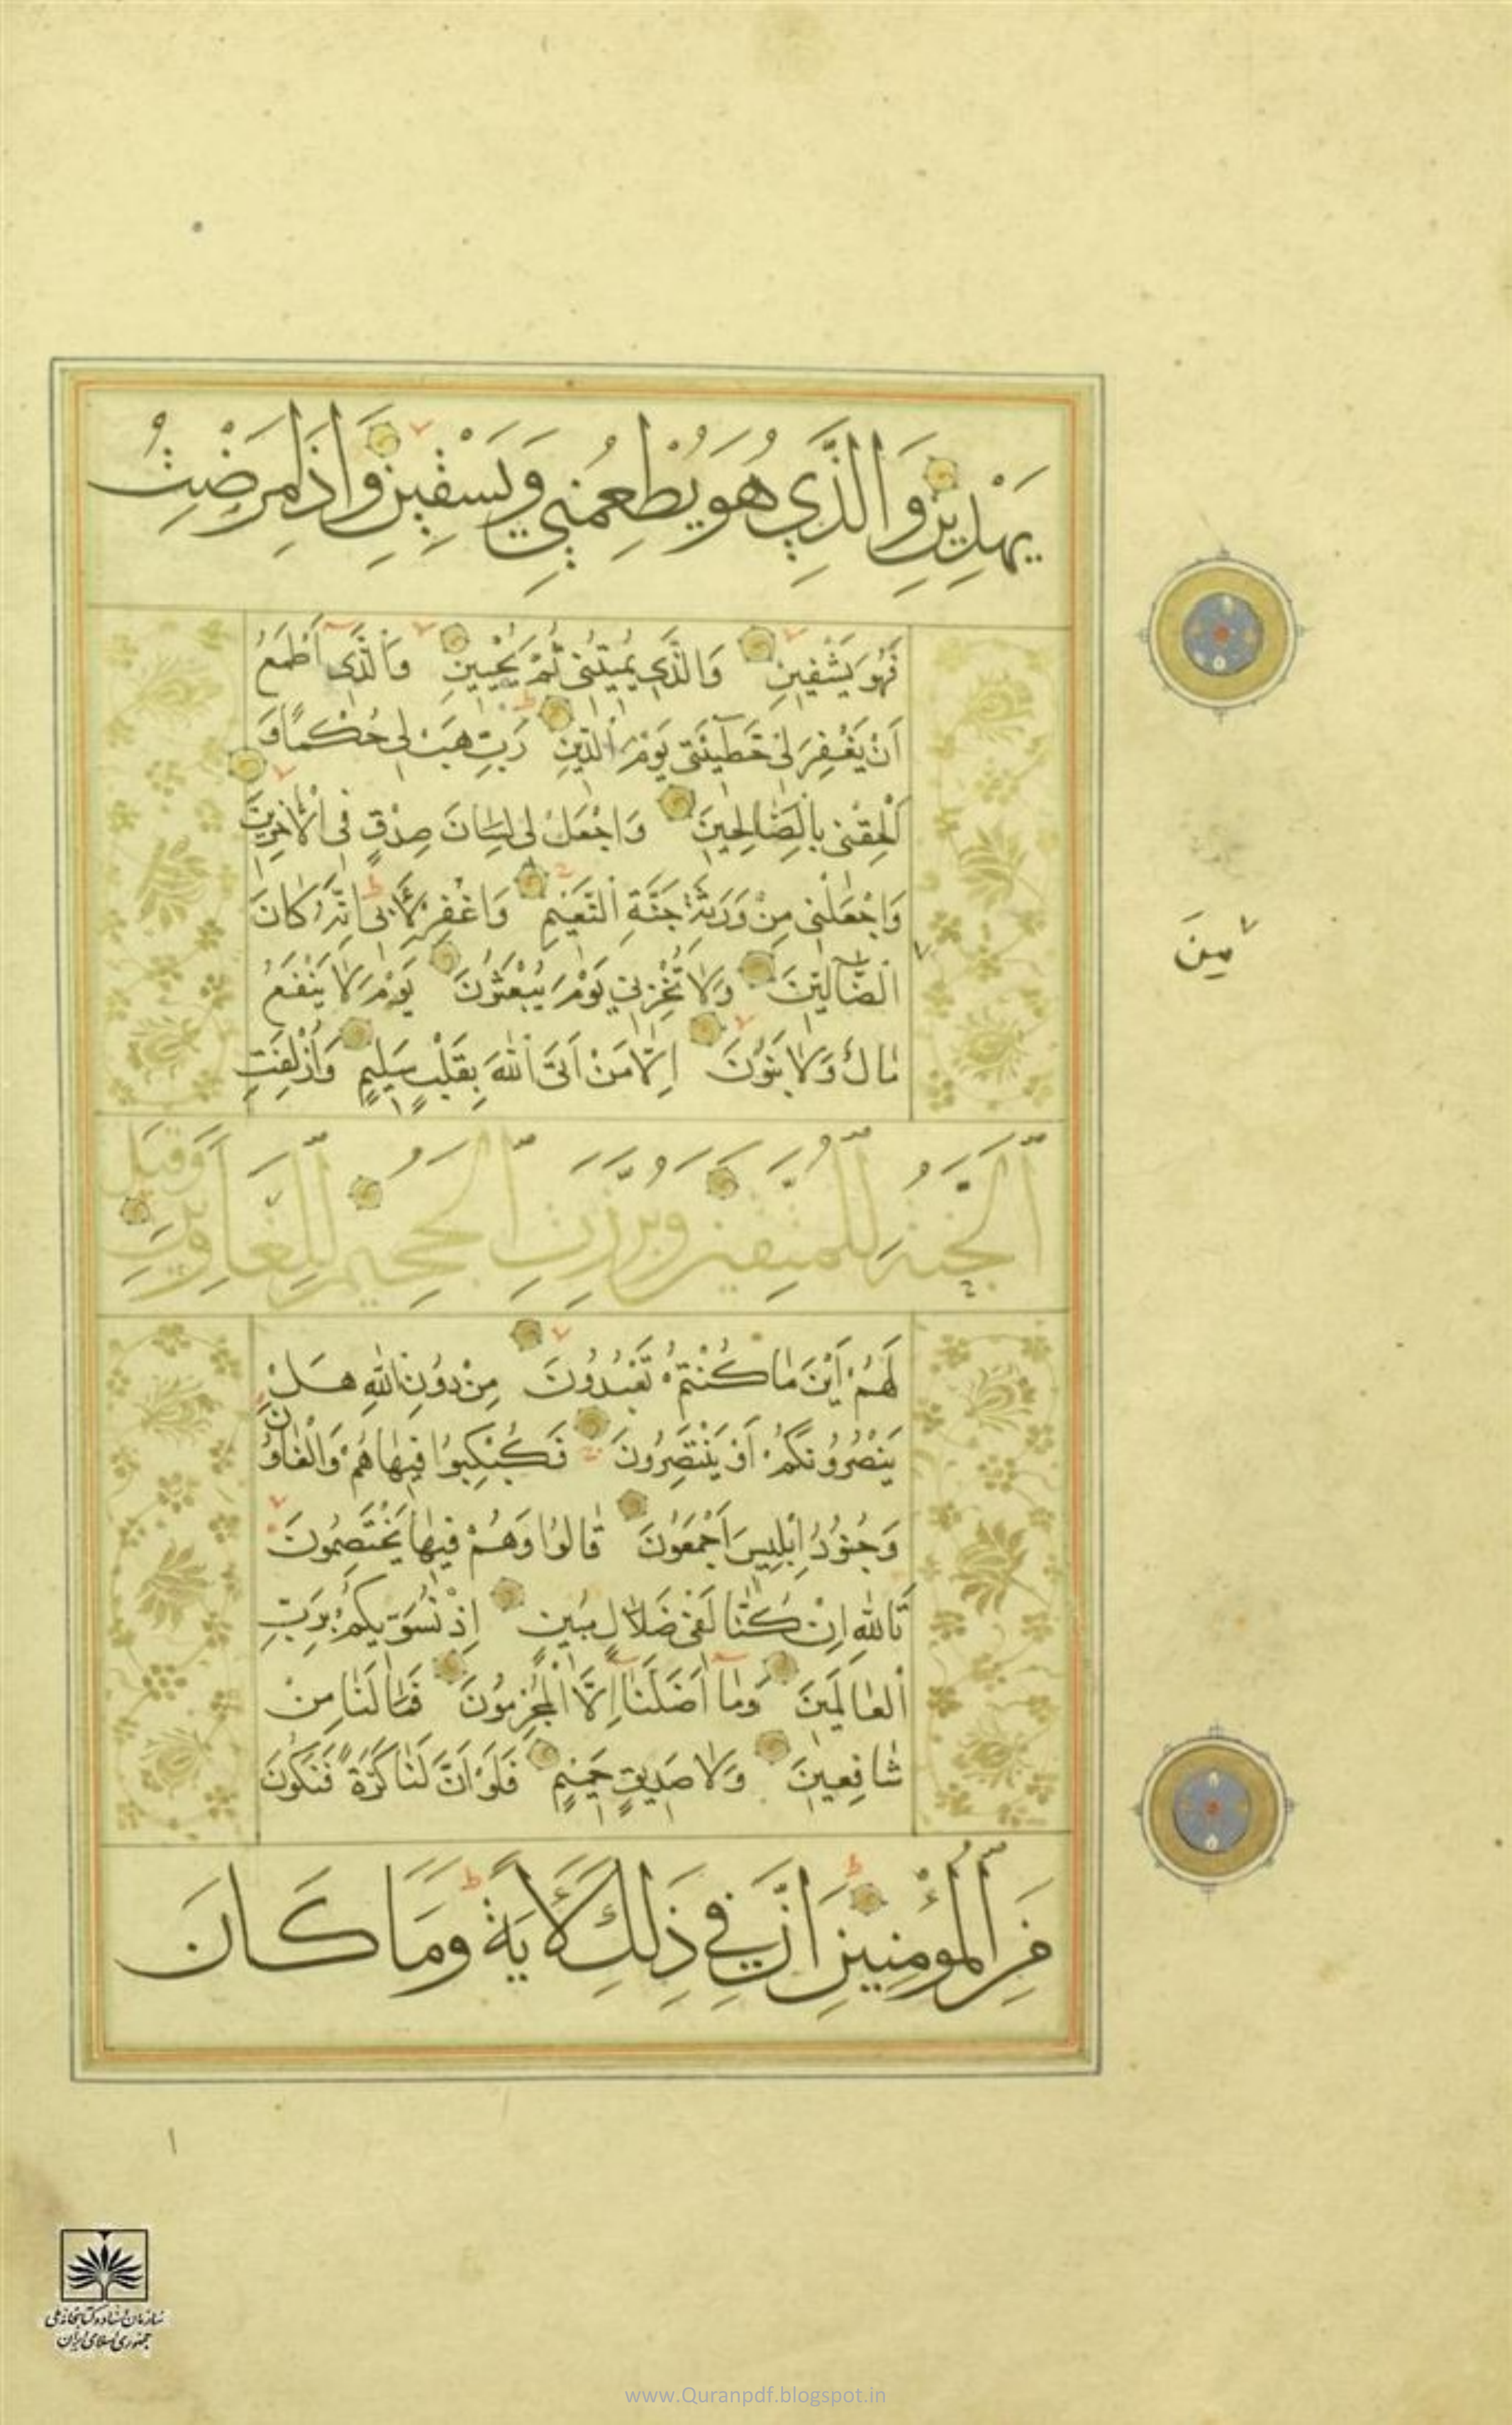 يَهْدِينِ وَالَّذِي هُوَ يُطْعِمُنِي وَيَسْقِينِ وَإِذَا مَرِضْتُ
فَهُوَ يَشْفِينِ وَالَّذِي يُمِيتُنِي ثُمَّ يُحْيِينِ وَالَّذِي أَطْمَعُ
اَنْ يَغْفِرَ لِي خَطِيئَتِي يَوْمَ الدِّينِ رَبِّ هَبْ لِي حُكْمًا وَ
اَلْحِقْنِي بِالصَّالِحِينَ وَاجْعَلْ لِي لِسَانَ صِدْقٍ فِي الْآخِرِينَ
وَاجْعَلْنِي مِنْ وَرَثَةِ جَنَّةِ النَّعِيمِ وَاغْفِرْ لِأَبِي اِنَّهُ كَانَ
مِنَ
الضَّالِّينَ وَلَا تُخْزِنِي يَوْمَ يُبْعَثُونَ يَوْمَ لَا يَنْفَعُ
مَالٌ وَلَا بَنُونَ اِلَّا مَنْ اَتَى اللَّهَ بِقَلْبٍ سَلِيمٍ وَأُزْلِفَتِ
الْجَنَّةُ لِلْمُتَّقِينَ وَبُرِّزَتِ الْجَحِيمُ لِلْغَاوِينَ وَقِيلَ
لَهُمْ أَيْنَ مَا كُنْتُمْ تَعْبُدُونَ مِنْ دُونِ اللَّهِ هَلْ
يَنْصُرُونَكُمْ أَوْ يَنْتَصِرُونَ فَكُبْكِبُوا فِيهَا هُمْ وَالْغَاوُنَ
وَجُنُودُ اِبْلِيسَ اَجْمَعُونَ قَالُوا وَهُمْ فِيهَا يَخْتَصِمُونَ
تَاللَّهِ اِنْ كُنَّا لَفِي ضَلَالٍ مُبِينٍ اِذْ نُسَوِّيكُمْ بِرَبِّ
الْعَالَمِينَ وَمَا أَضَلَّنَا اِلَّا الْمُجْرِمُونَ فَمَا لَنَا مِنْ
شَافِعِينَ وَلَا صَدِيقٍ حَمِيمٍ فَلَوْ اَنَّ لَنَا كَرَّةً فَنَكُونَ
مِنَ الْمُؤْمِنِينَ اِنَّ فِي ذَلِكَ لَآيَةً وَمَا كَانَ
١
سازمان اسناد و کتابخانه ملی
جمهوری اسلامی ایران
www.Quranpdf.blogspot.in